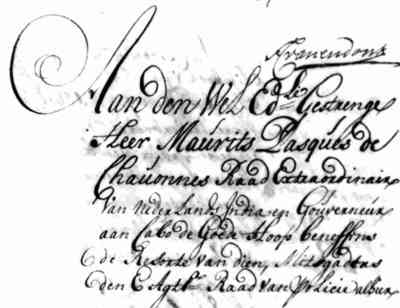 Aan den Wel Ed.le Gestrenge
Heer Maurits Pasques de
Chavonnes Raad Extraordinair
van Nederlands India en Gouverneur
aan Cabo de Goede Hoop beneffens
de Resorte van dien, Mitsgaders
den E Agtb. Raad van Policie alhier